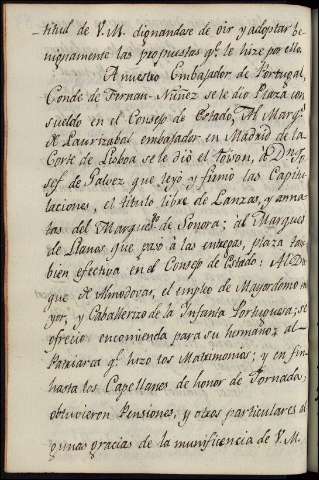 -titud de V.M. dignandose de oir y adoptar be
nignamente las propuestas q.e le hize por ello.
A nuestro Embajador de Portugal,
Conde de Fernan-Nuñez se le dió Plaza con
sueldo en el Consejo de Estado, Al Marq.s
de Laurizabal embajador en Madrid de la
Corte de Lisboa se le dió el toison, a D.n Jo
sef de Galvez que leyó y firmó las Capitu
laciones, el titulo libre de Lanzas, y anna
tas del Marques.do de Sonora; al Marques
de Llanos que pasó á las entregas, plaza tam
bien efectiva en el Consejo de Estado: Al Du
que de Almodovar, el empleo de Mayordomo ma
yor, y Caballerizo de la Infanta Portuguesa; se
ofreció encomienda para su hermano; al
Patriarca q.e hizo los Matrimonios; y en fin
hasta los Capellanes de honor de Jornada;
obtuvieron Pensiones, y otros particulares al
gunas gracias de la munificencia de V.M.